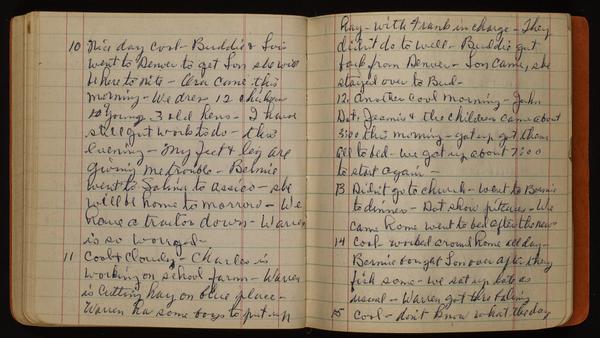 10 Nice day cool - Buddie &
went to Denver to get Son she will
be here to nite - came this
morning - We dres 12 chicken
10 young. 3 old hens - I have
still got work to do - this
evening - My feet & leg are
giving me trouble - Bernie
went to Salina to assco - she
will be home to morrow - We
have a tractor down - Warren
is so worryed -
11 Cool & Cloudy - Charles is
working on school farm - Warren
is Cutting hay on blue place -
Warren has some boys to put up
hay - with Frank in charge - They
didn't do to well - Buddie got
back from Denver - Son Came, she
stayed over to Bud -
12. Another Cool morning - John
Dot, Jeanie & the children came about
3:00 this morning - got up got them
all to bed - we got up about 7:00
to start again -
13 Didn't go to church - went to Bernie
to dinner - Dot show pitures - We
came home went to bed after the news
14 Cool - worked around home all day -
Bernie bought Son over after they
fish some - we sat up late as
usual - Warren got thro baling
15 Cool - don't know what the day